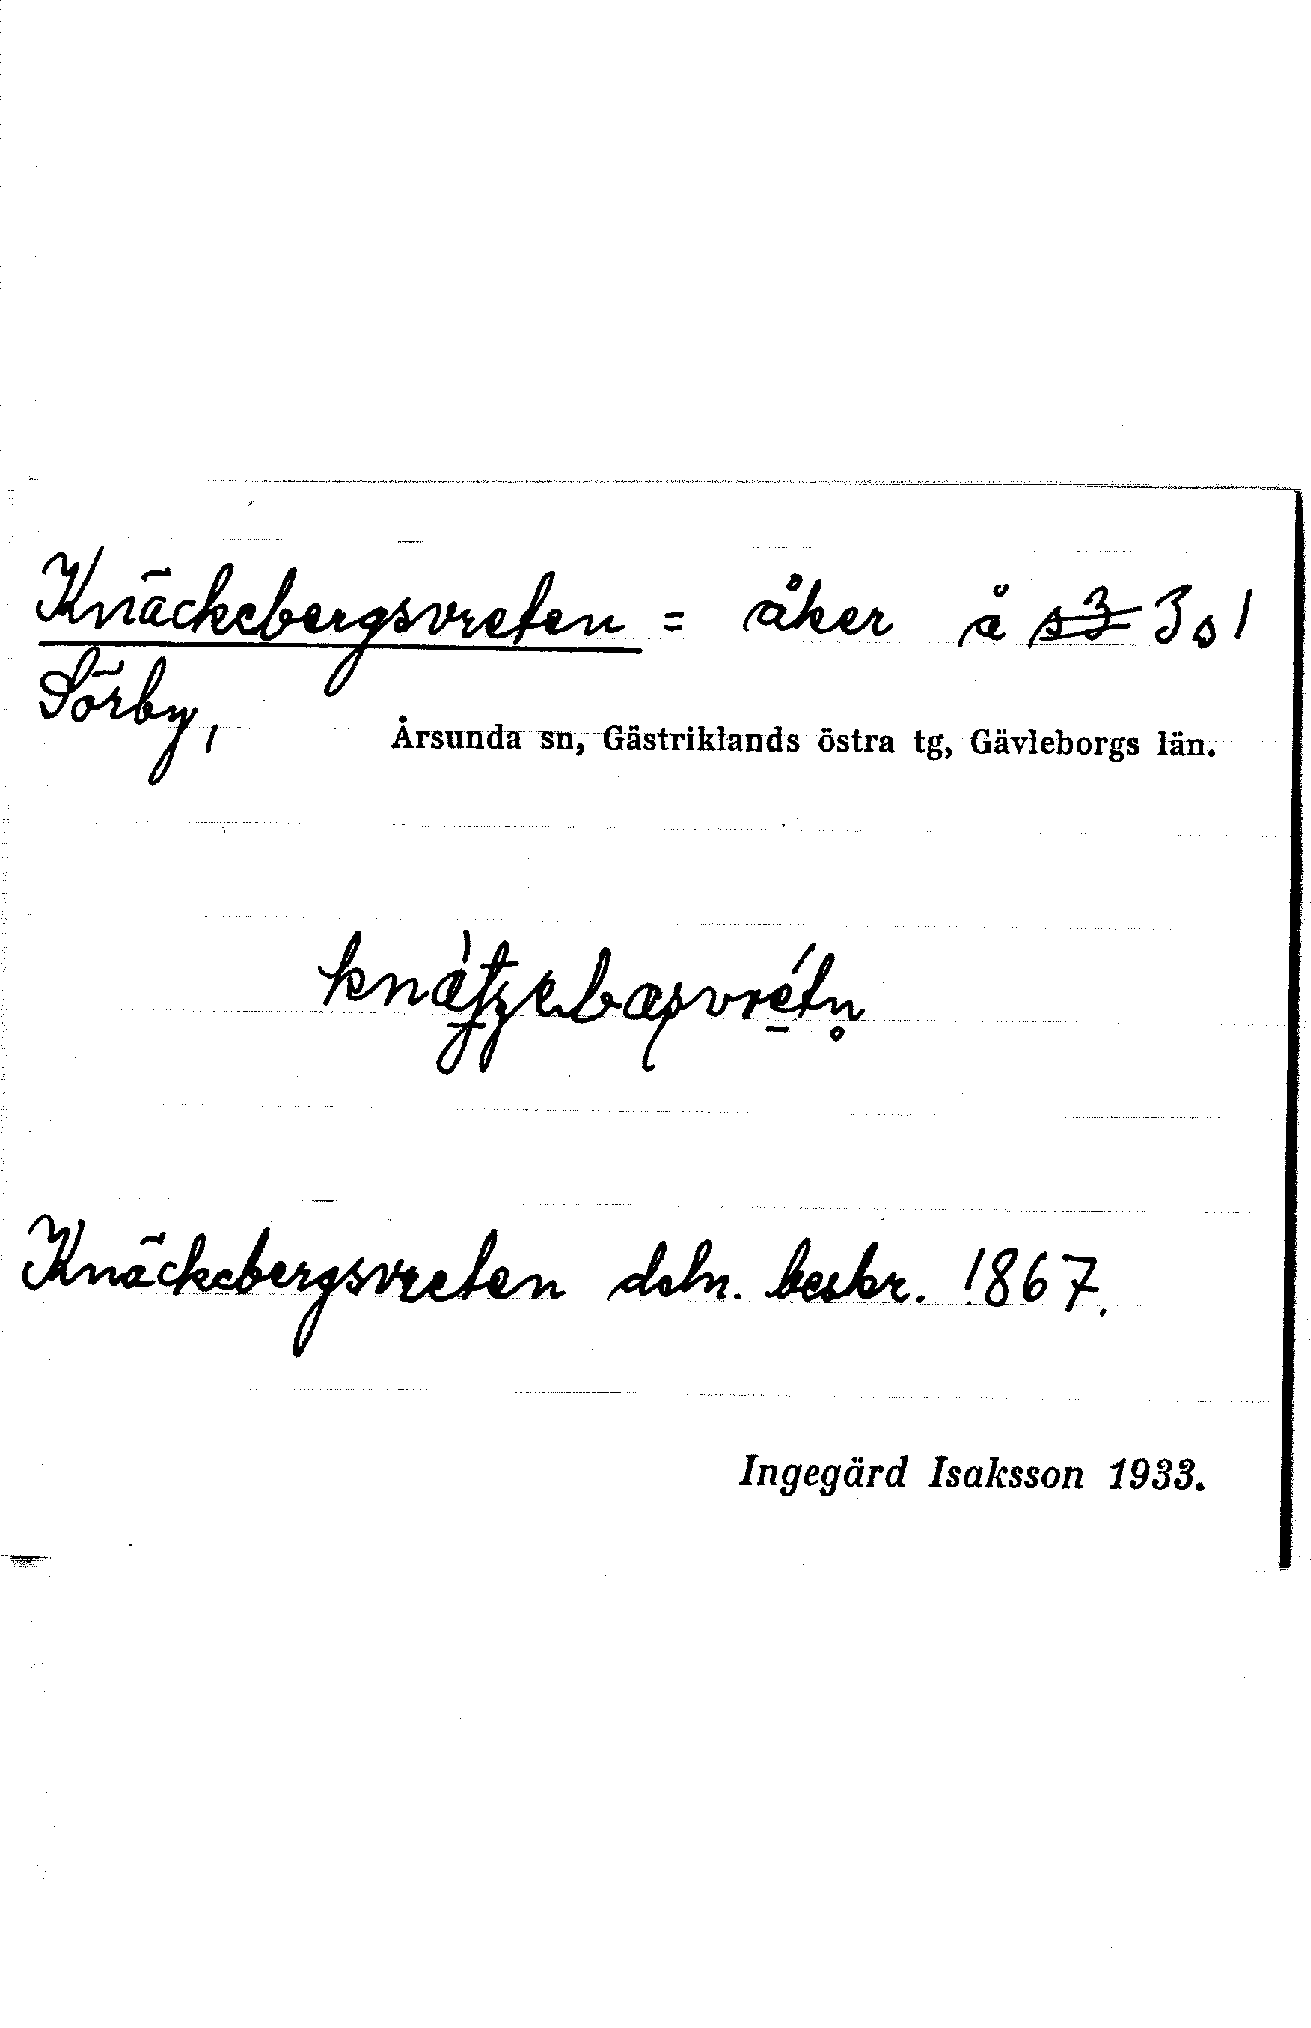 Knäckebergsvreten = åker å s3 3s1
Sörby, Årsunda sn, Gästriklands östra tg, Gävleborgs län.
Knäckebergsvreten deln. beskr. 1867.
Ingegärd Isaksson 1933.